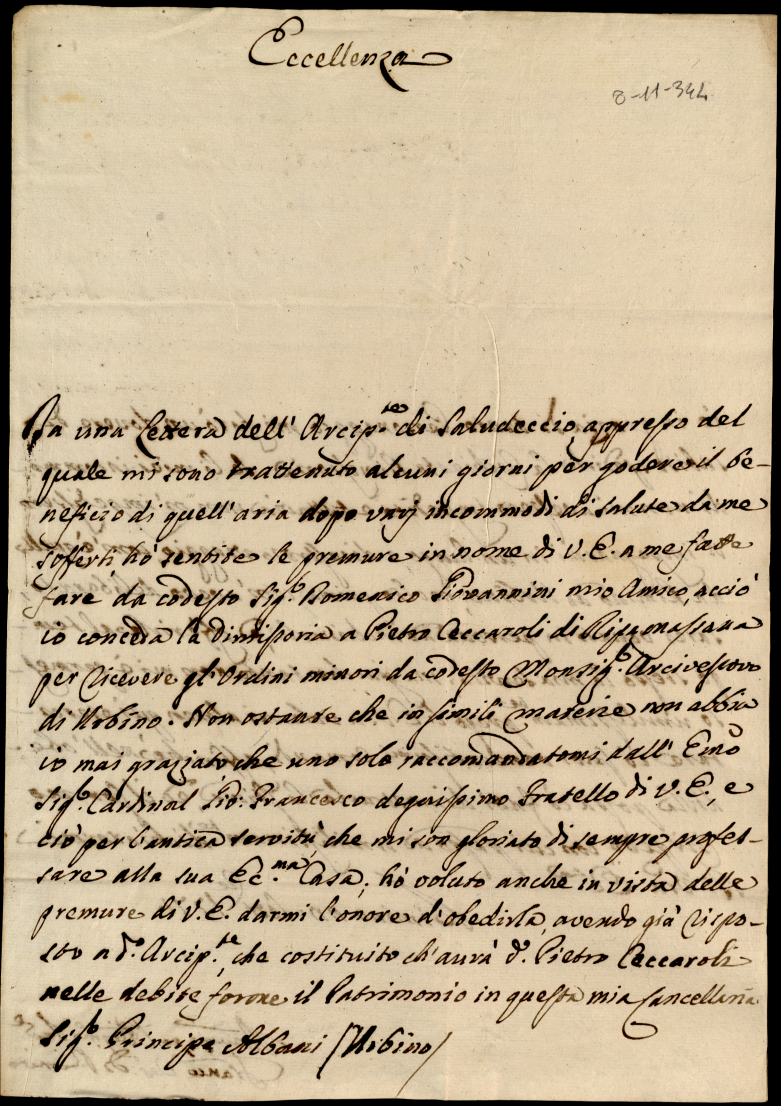 Eccellenza
8-11-344
Da una Lettera dell' Arcip.te di Saludeccio, appresso del
quale mi sono trattenuto alcuni giorni per godere il be-
neficio di quell'aria dopo varj incommodi di salute da me
sofferti, hò sentite le premure in nome di V. E. a me fatte
fare da codesto Sig.r Domenico Giovannini mio Amico, acciò
io conceda la dimissoria a Pietro Ceccaroli di
per ricevere gl'Ordini minori da codesto Monsig.r Arcivescovo
di Urbino. Non ostante che in simili materie non abbia
io mai graziato, che uno solo raccomandatomi dall' Emo
Sig.r Cardinal Gio: Francesco degnissimo Fratello di V. E., e
ciò per l'antica servitù, che mi son gloriato di sempre profes-
sare alla sua Ec.ma Casa; hò voluto anche in vista delle
premure di V. E. darmi l'onore d'obedirla, avendo già rispo-
sto a d.o Arcip.te, che costituito ch'aurà d.o Pietro Ceccaroli
nelle debite forme il Patrimonio in questa mia Cancellaria
Sig.r Principe Albani /Urbino/